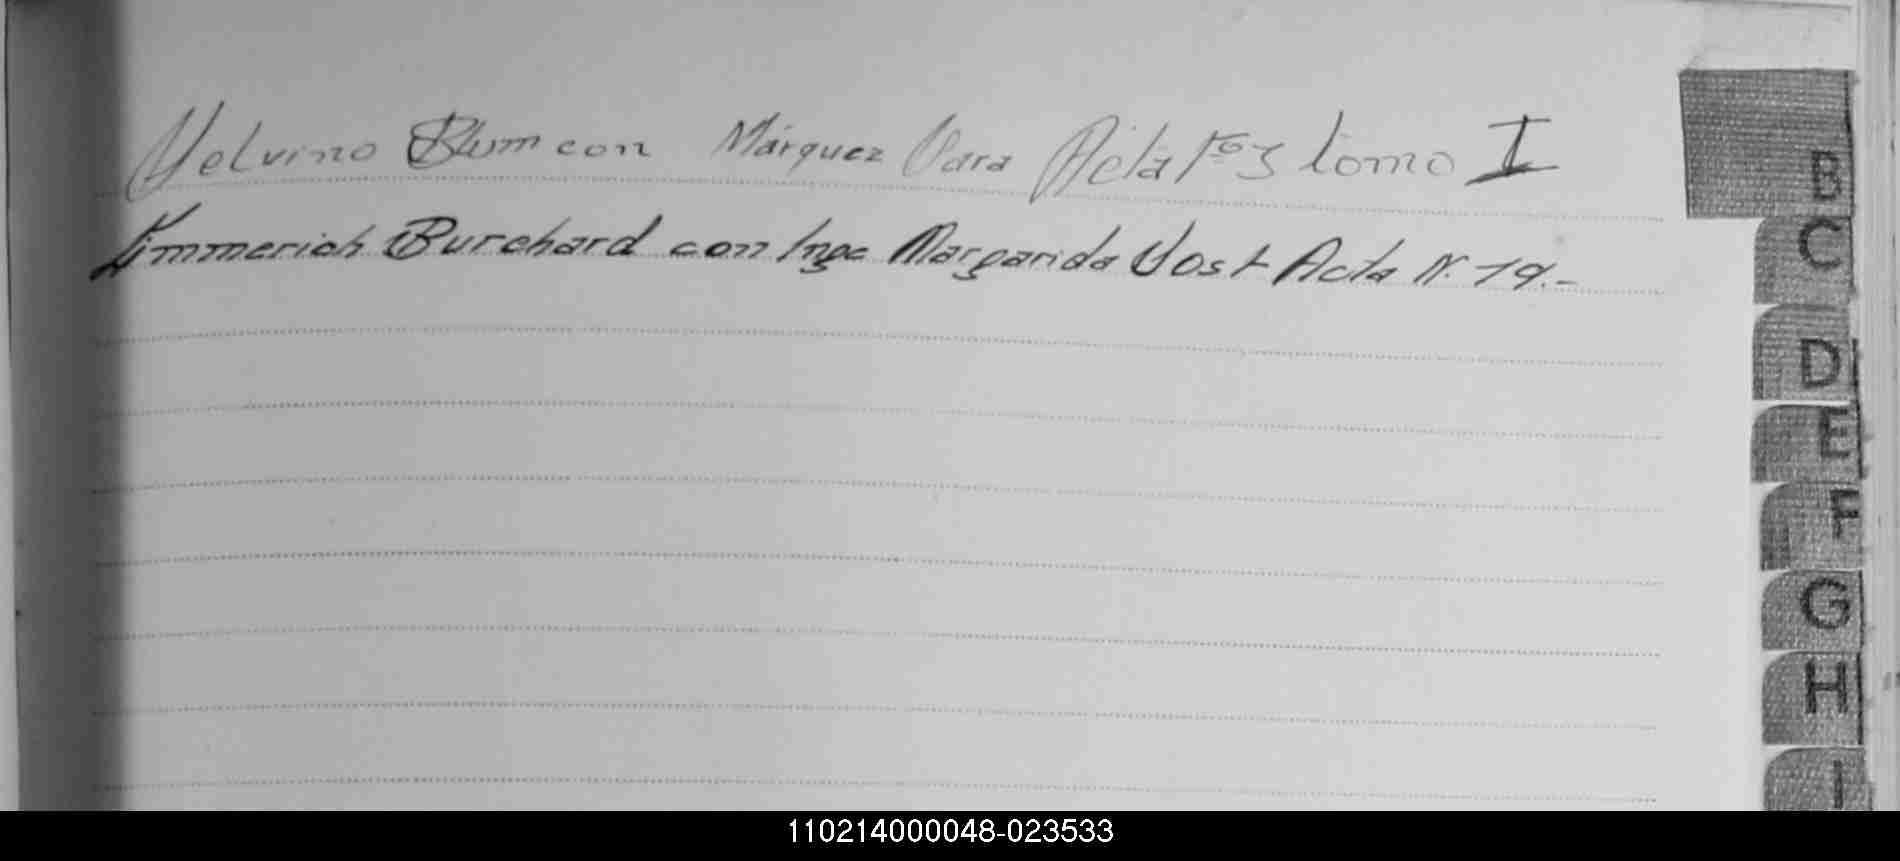 Melvino Blum con Márquez Vara Acta Tomo I
Zimmerich Burchard con Inge Margarida Jost Acta N. 19.-
B
C
D
E
F
G
H
I
110214000048-023533